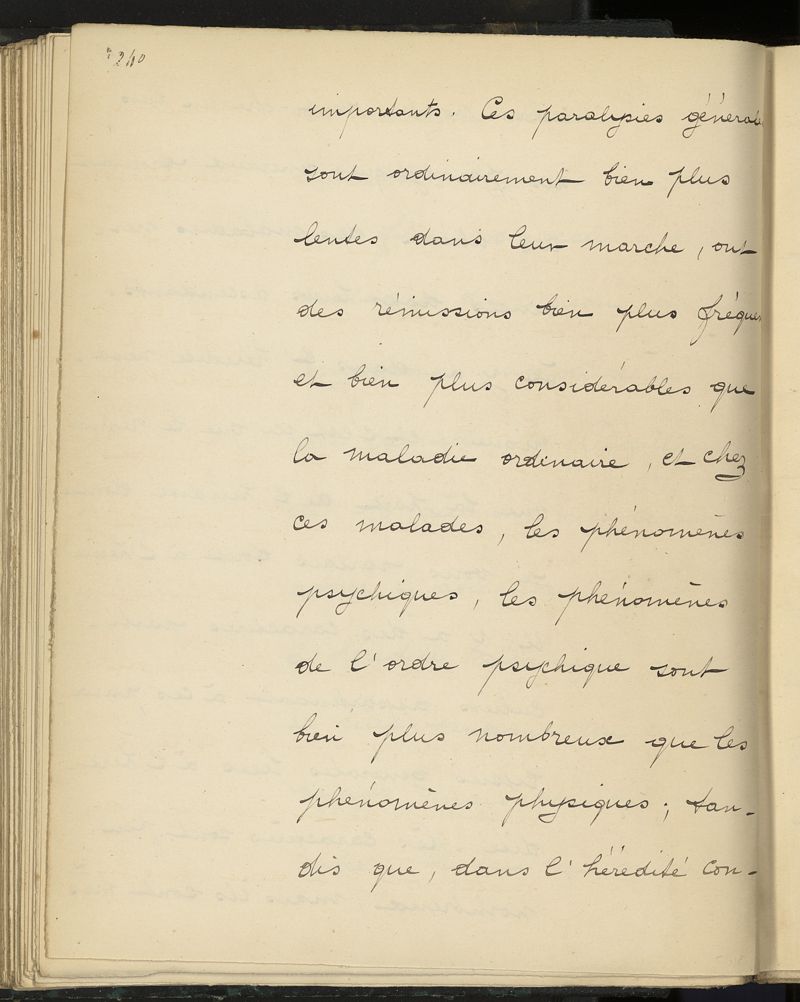 240
importants. Ces paralysies générales
sont ordinairement bien plus
lentes dans leur marche, ont
des rémissions bien plus fréquen
et bien plus considérables que
la maladie ordinaire, et chez
ces malades, les phénomènes
psychiques, les phénomènes
de l'ordre psychique sont
bien plus nombreux que les
phénomènes physiques; tan-
dis que, dans l'hérédité con-